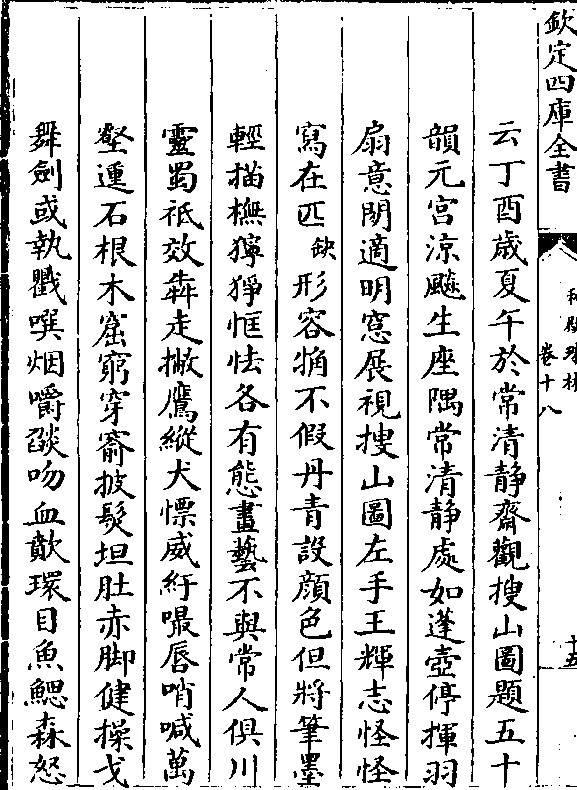 欽定四庫全書
卷十八
十五
云丁酉歲夏午於常清靜齋觀搜山圖題五十
韻元宮涼飈生座隅常清靜處如蓬壺停揮羽
扇意閒適明窓展視搜山圖左手王輝志怪怪
寫在匹缺形容捔不假丹青設顔色但將筆墨
輕描橅獰猙恇怯各有態畫藝不與常人俱川
靈蜀祇效犇走撇鷹縱犬慓威紆嘬唇哨喊萬
壑連石根木窟窮穿窬披髮坦肚赤脚健操戈
舞劍或執戳噀烟嚼燄吻血歕環目魚鰓森怒